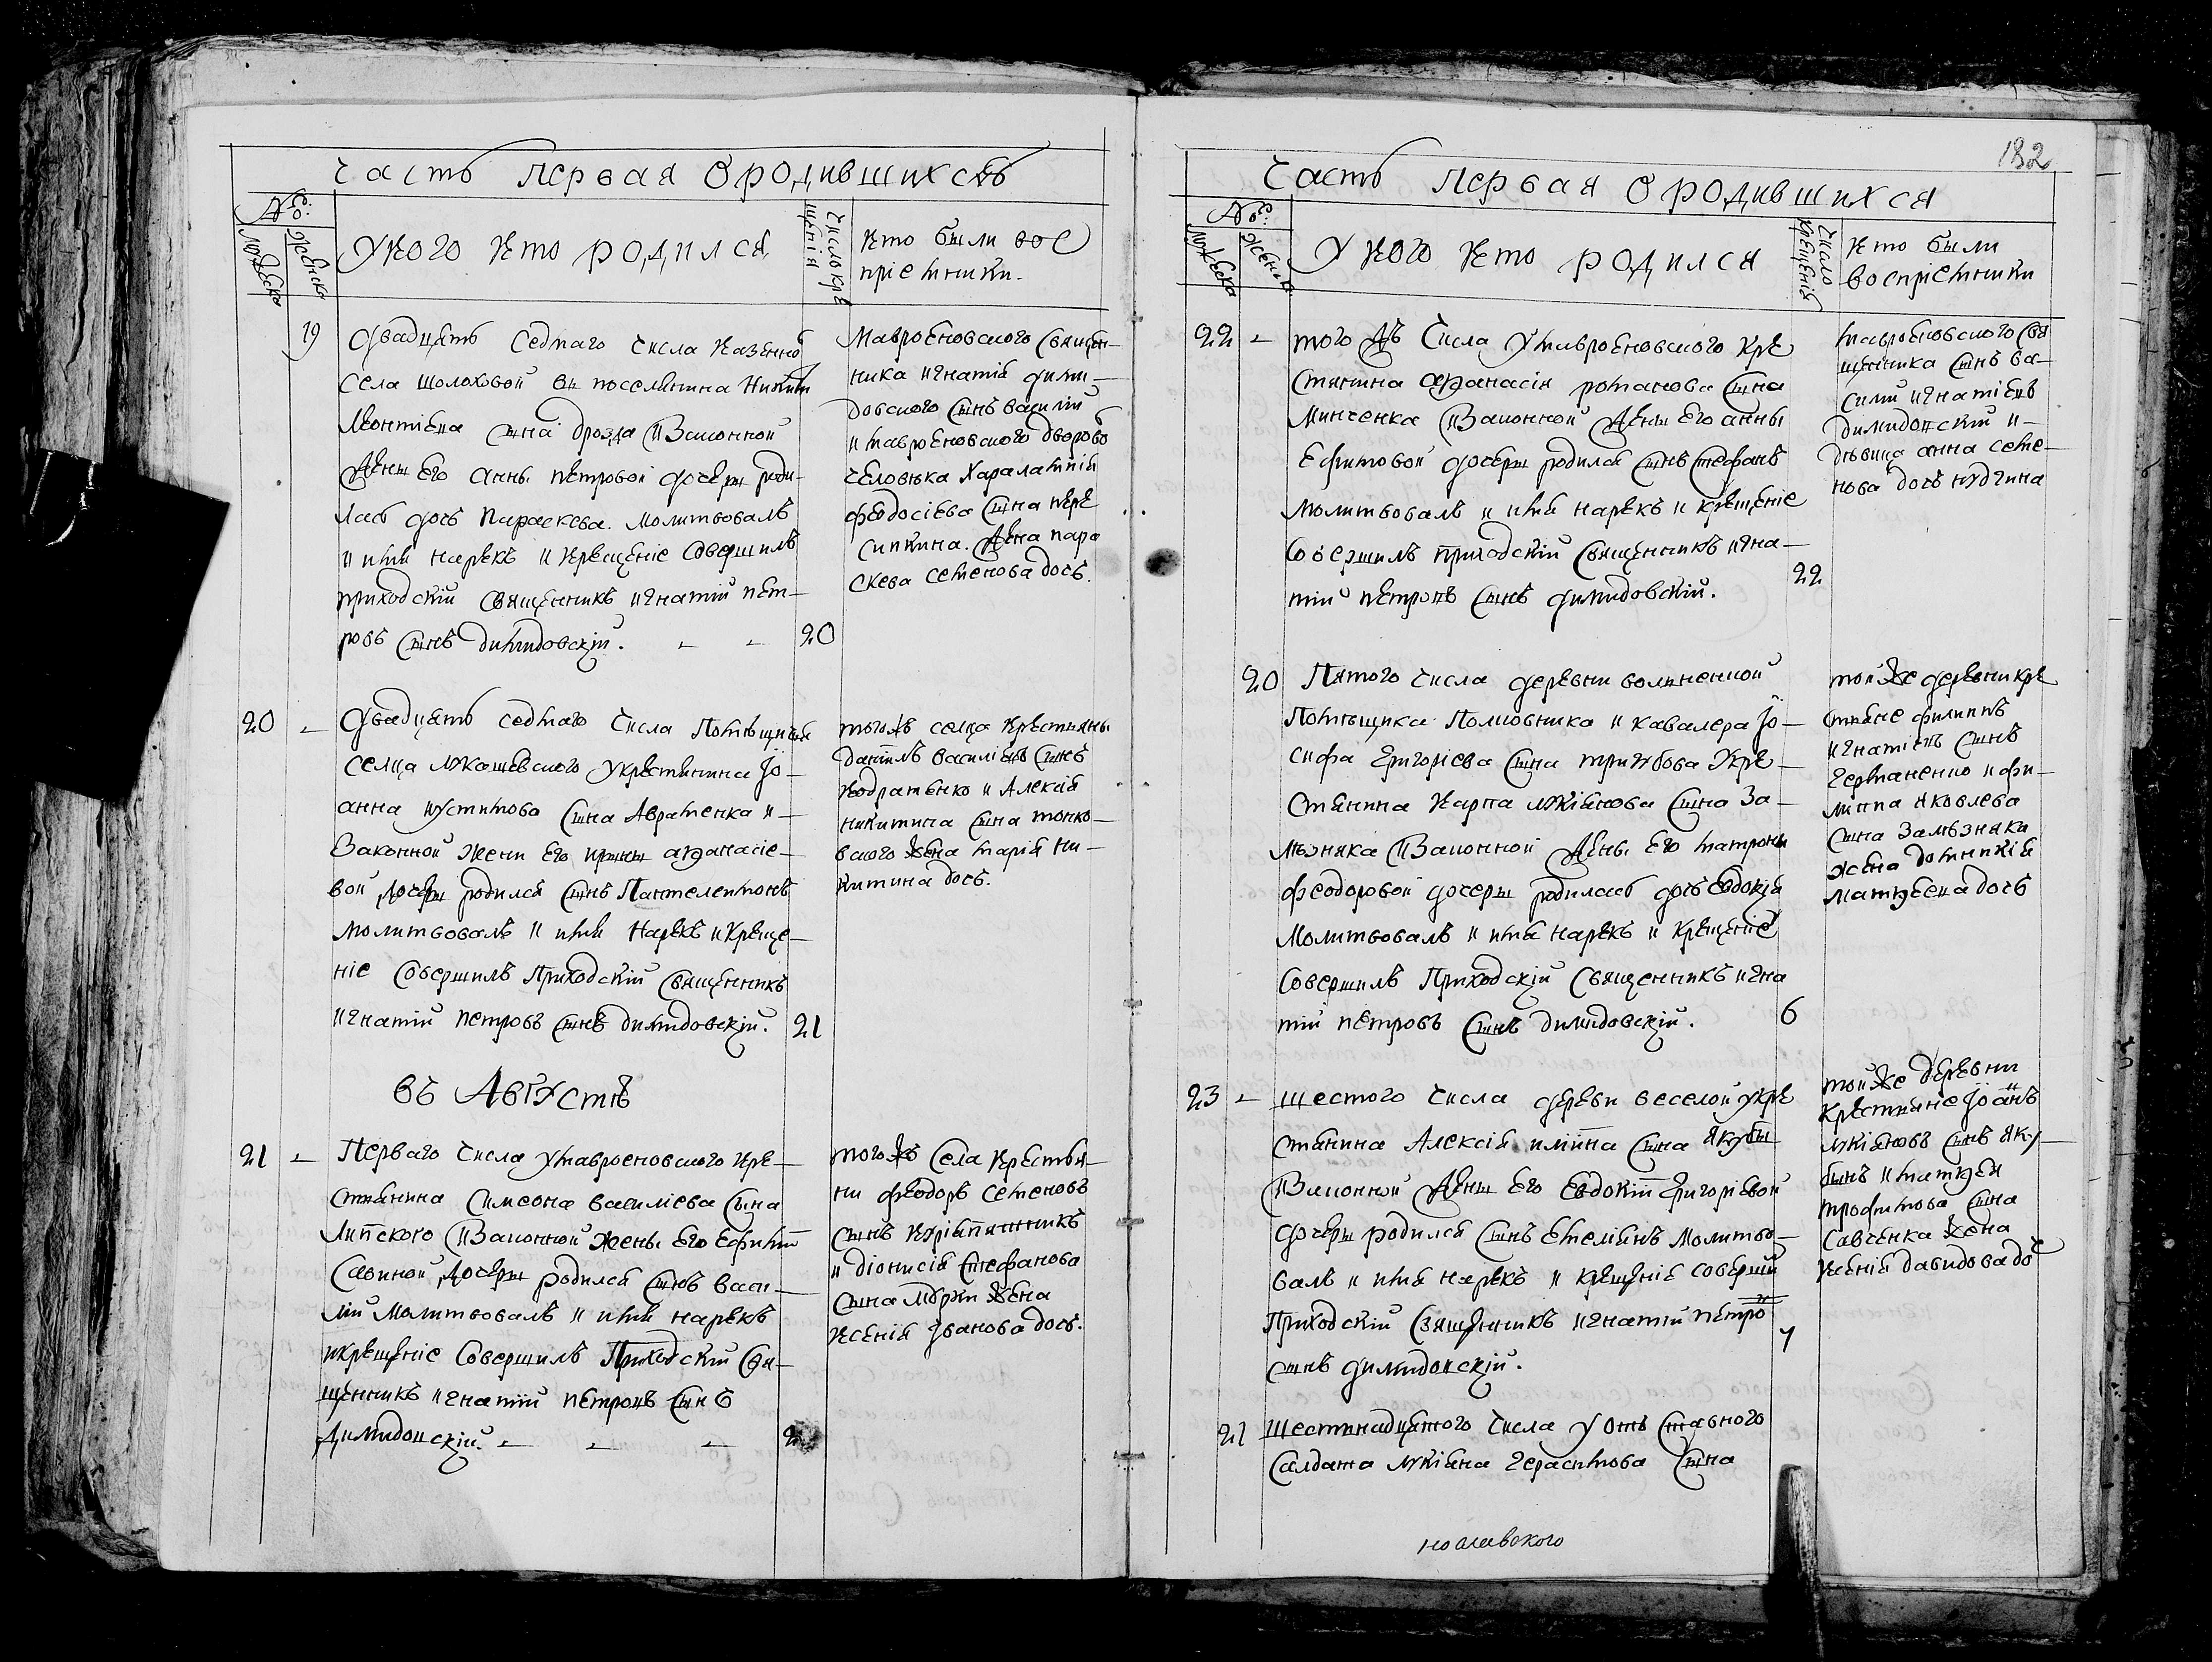 Часть первая О родившихсѣ
№о:
Мужеска
Женска
У кого кто родился
Число кре
щенія
Кто были вос
пріемники.
19
Двадцять седмаго числа казенно
села Шолоховой
Леонтіева сына Дрозда и Законной
Жены Его Анны Петровой дочеры роди-
лась дочь Параскева. Молитвовалъ
и имя нарекъ и Крещеніе Совершилъ
приходскій Священникъ Игнатій Пет-
ровъ Сынъ Димидовскій. - -
20
Мавроеновского Священ-
ника Игнатія Дими-
довского Сынъ Василій
и Мавроеновского дворово
человѣка Харалампія
Феодосіева Сына пере
сипкина. Жена пара
скева Семенова дочь.
20 -
Двадцять седмаго числа Помѣщика
селца Лукашевского у крестянина Іо-
анна Иустимова Сына Авраменка и
Законной жени Его Ирины Афанасіе-
вой Дочеры родился Сынъ Пантелеимонъ
Молитвовалъ и имя Нарекъ и Креще-
ніе Совершилъ Приходскій Священникъ
Игнатій Петровъ Сынъ Димидовскій.
21
тогожъ селца Крестьяны
Даніилъ Василіевъ Сынъ
Кодратенко и Алексія
Никитина Сына тонко-
вского Жена Марія Ни-
китина дочь.
въ Августѣ
21 -
Перваго числа у Мавроеновского кре-
стянина Симеона Василіева Сына
Липского и Законной жены Его Ефиміи
Савиной Дочеры родился Сынъ Васи-
лій Молитвовалъ и имя нарекъ
и крещеніе Совершилъ Приходскій Свя-
щенникъ Игнатій Петровъ Сынъ
Димидовскій. - - -
тогожъ Села Крестья-
ни Феодоръ Семеновъ
Сынъ
и Діонисія Стефанова
Сына Жена
Ксенія Іванова дочь.
182
Часть первая О родившихся
№о:
Мужеска
Женска
У кого кто родился
Число
Крещенія
Кто были
воспріемники
22 -
того жъ Числа у Мавроеновского Кре
стянина Афанасія Романова Сына
Минченка и Законной Жены Его Анны
Ефимовой дочеры родился Сынъ Стефанъ
Молитвовалъ и имя нарекъ и крещеніе
Совершилъ приходскій Священникъ Игна-
тій Петровъ Сынъ Димидовскій.
22
Мавроеновского Свя
щенника Сынъ Ва-
силій Игнатіевъ
Димидовскій и -
Дѣвица Анна Семе-
нова дочь
20
Пятого числа деревни волненной
Помѣщика Полковника и Кавалера Іо-
сифа Григоріева Сына Тригубова У кре-
стянина Карпа Лукіянова Сына За-
лѣзняка и Законной Жены Его Матроны
Феодоровой дочеры родилась дочь Евдокія
Молитвовалъ и имя нарекъ и Крещеніе
Совершилъ Приходскій Священникъ Игна
тій Петровъ Сынъ Димидовскій.
6
той же деревни кре
стяне Филиппъ
Игнатіевъ Сынъ
Германенко и Фи-
липпа Яковлева
Сына Залѣзняка
жена Домникія
Матфеева дочь
23 -
Шестого числа деревн Веселой у кре
стянина Алексія Иліина Сына Якубы
и Законной Жены Его Евдокіи Григоріевой
дочеры родился Сынъ Емеліанъ Молитво-
валъ и имя нарекъ и крещеніе соверши
Приходскій Священникъ Игнатій Петро
Сынъ Димидовскій.
7
той же деревни
крестяне Іоанъ
Лукіановъ Сынъ Яку-
бынъ и Матфея
Трофимова Сына
Савченка Жена
Ксенія Давидова до
21
Шестьнадцятого числа у отъставного
Салдата Лукіана Герасимова Сына